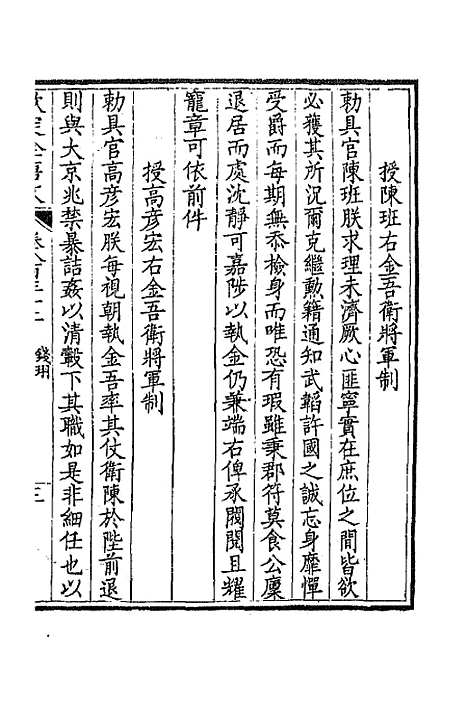 授陳班右金吾衛將軍制
勅具官陳班朕求理未濟厥心匪寧實在庶位之間皆欲
必獲其所況爾克繼勳籍通知武韜許國之誠忘身靡憚
受爵而每期無忝檢身而唯恐有瑕雖秉郡符莫食公廩
退居而處沈靜可嘉陟以執金仍兼端右俾承閥閱且耀
寵章可依前件
授高彦宏右金吾衛將軍制
勅具官高彦宏朕每視朝執金吾率其仗衛陳於陛前退
則與大京兆禁暴詰姦以清轂下其職如是非細任也以
錢珝
三